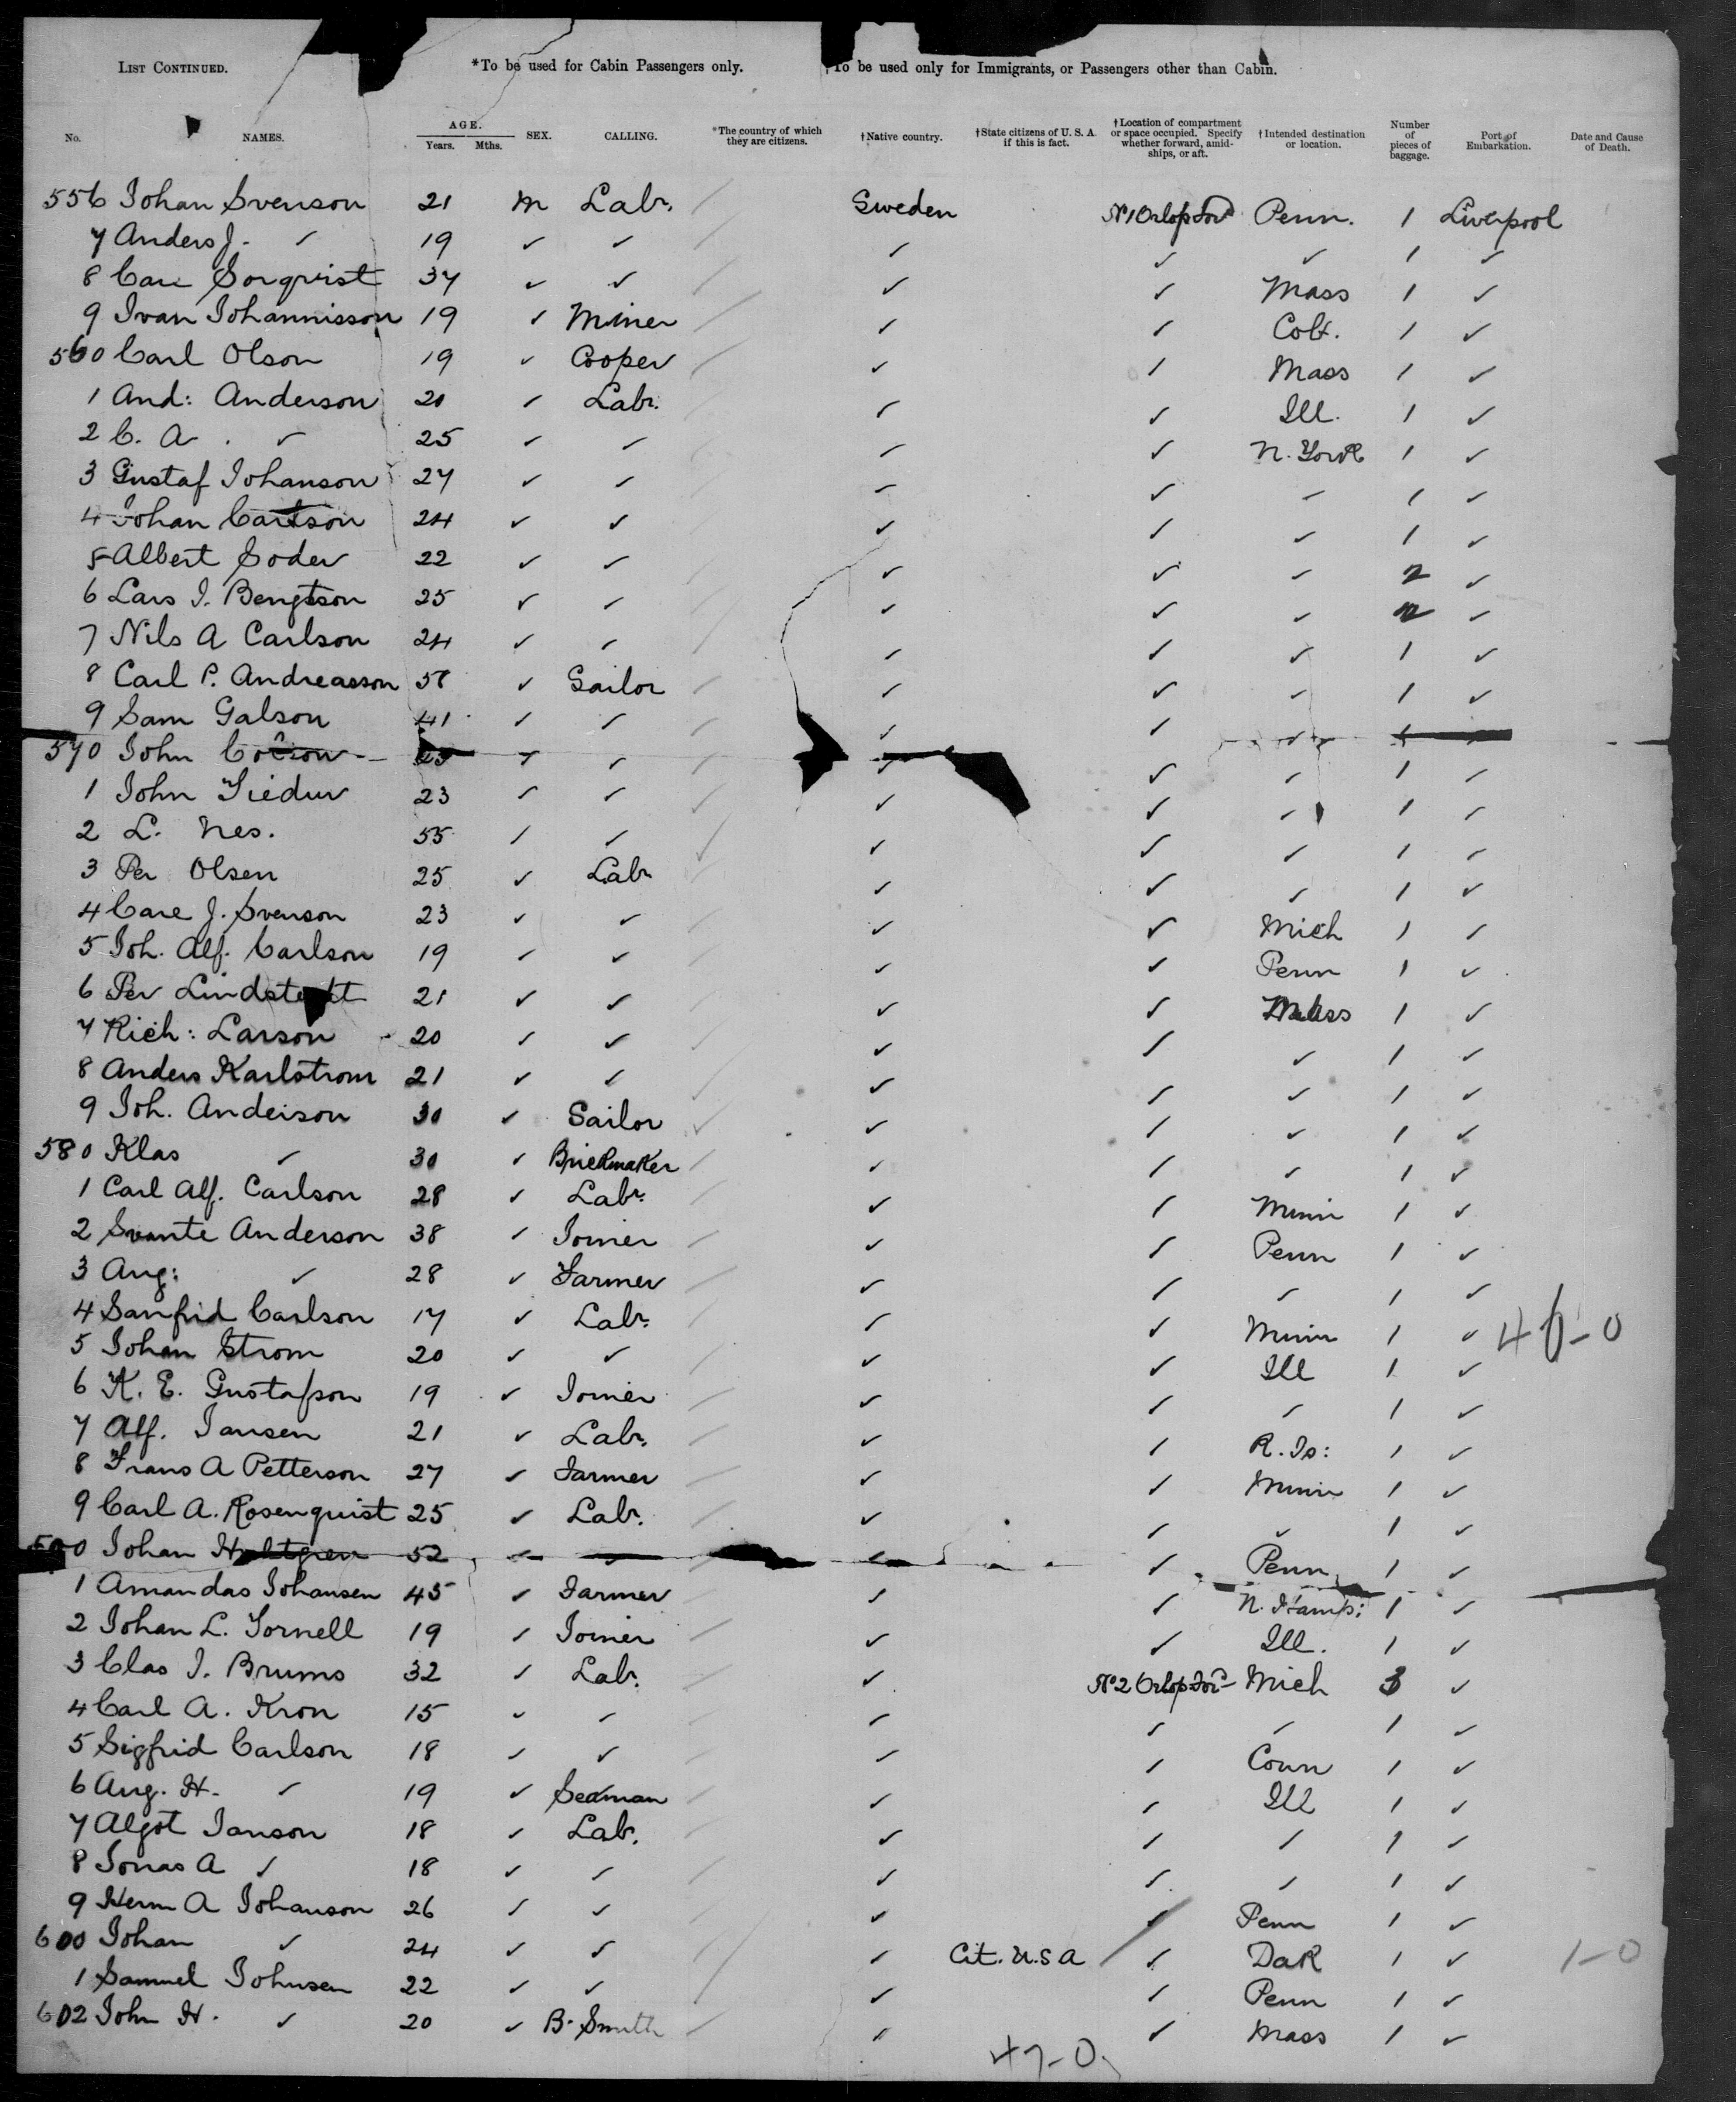 LIST CONTINUED. *To be used for Cabin Passengers only. To be used only for Immigrants, or Passengers other than Cabin.
No. NAMES. AGE. Years. Mths. SEX. CALLING. *The country of which they are citizens. †Native country. †State citizens of U. S. A. if this is fact. †Location of compartment or space occupied. Specify whether forward, amidships, or aft. †Intended destination or location. Number of pieces of baggage. Port of Embarkation. Date and Cause of Death.
556 Johan Svenson 21 M Labr. Sweden No 1 Orlop For'd Penn. 1 Liverpool
7 Anders J. ✓ 19 ✓ ✓ ✓ ✓ ✓ 1 ✓
8 Carl Sorqvist 37 ✓ ✓ ✓ ✓ Mass 1 ✓
9 Ivan Johannisson 19 ✓ Miner ✓ ✓ Col. 1 ✓
560 Carl Olson 19 ✓ Cooper ✓ ✓ Mass 1 ✓
1 And: Anderson 20 ✓ Labr. ✓ ✓ Ill. 1 ✓
2 C. A. ✓ 25 ✓ ✓ ✓ ✓ N. York 1 ✓
3 Gustaf Johanson 27 ✓ ✓ ✓ ✓ ✓ 1 ✓
4 Johan Carlson 24 ✓ ✓ ✓ ✓ ✓ 1 ✓
5 Albert Soder 22 ✓ ✓ ✓ ✓ ✓ 2 ✓
6 Lars J. Bengtson 25 ✓ ✓ ✓ ✓ ✓ 2 ✓
7 Nils A Carlson 24 ✓ ✓ ✓ ✓ ✓ 1 ✓
8 Carl P. Andreasson ✓ Sailor ✓ ✓ ✓ 1 ✓
9 Sam Galson 41 ✓ ✓ ✓ ✓ ✓ ✓
570 John ✓ ✓ ✓ ✓ ✓ 1 ✓
1 John 23 ✓ ✓ ✓ ✓ ✓ 1 ✓
2 L. Nes. 55 ✓ ✓ ✓ ✓ ✓ 1 ✓
3 Per Olsen 25 ✓ Labr ✓ ✓ ✓ 1 ✓
4 Carl J. Svenson 23 ✓ ✓ ✓ ✓ Mich 1 ✓
5 Joh. Alf. Carlson 19 ✓ ✓ ✓ ✓ Penn 1 ✓
6 Per Lindstedt 21 ✓ ✓ ✓ ✓ Mass 1 ✓
7 Rich: Larson 20 ✓ ✓ ✓ ✓ ✓ 1 ✓
8 Anders Karlstrom 21 ✓ ✓ ✓ ✓ ✓ 1 ✓
9 Joh. Anderson 30 ✓ Sailor ✓ ✓ ✓ 1 ✓
580 Klas ✓ 30 ✓ Brickmaker ✓ ✓ ✓ 1 ✓
1 Carl Alf. Carlson 28 ✓ Labr. ✓ ✓ Minn 1 ✓
2 Svante Anderson 38 ✓ Joiner ✓ ✓ Penn 1 ✓
3 Aug: ✓ 28 ✓ Farmer ✓ ✓ ✓ 1 ✓
4 Sanfrid Carlson 17 ✓ Labr. ✓ ✓ Minn 1 ✓ 46-0
5 Johan Strom 20 ✓ ✓ ✓ ✓ Ill 1 ✓
6 K. E. Gustafson 19 ✓ Joiner ✓ ✓ ✓ 1 ✓
7 Alf. Jansen 21 ✓ Labr. ✓ ✓ R. Is: 1 ✓
8 Frans A Petterson 27 ✓ Farmer ✓ ✓ Minn 1 ✓
9 Carl A. Rosenquist 25 ✓ Labr. ✓ ✓ ✓ 1 ✓
590 Johan Hultgren 52 ✓ ✓ ✓ ✓ Penn 1 ✓
1 Amandas Johansen 45 ✓ Farmer ✓ ✓ N. Hamp: 1 ✓
2 Johan L. Fornell 19 ✓ Joiner ✓ ✓ Ill. 1 ✓
3 Clas J. Brums 32 ✓ Labr. ✓ No 2 Orlop For'd Mich 3 ✓
4 Carl A. Kron 15 ✓ ✓ ✓ ✓ ✓ 1 ✓
5 Sigfrid Carlson 18 ✓ ✓ ✓ ✓ Conn 1 ✓
6 Aug. H. ✓ 19 ✓ Seaman ✓ ✓ Ill 1 ✓
7 Algot Janson 18 ✓ Labr. ✓ ✓ ✓ 1 ✓
8 Jonas A ✓ 18 ✓ ✓ ✓ ✓ ✓ 1 ✓
9 Herm A Johanson 26 ✓ ✓ ✓ ✓ Penn 1 ✓
600 Johan ✓ 24 ✓ ✓ ✓ Cit. U.S A ✓ Dak 1 ✓ 1-0
1 Samuel Johnsen 22 ✓ ✓ ✓ ✓ Penn 1 ✓
602 John H. ✓ 20 ✓ B. Smith ✓ ✓ Mass 1 ✓
47-0